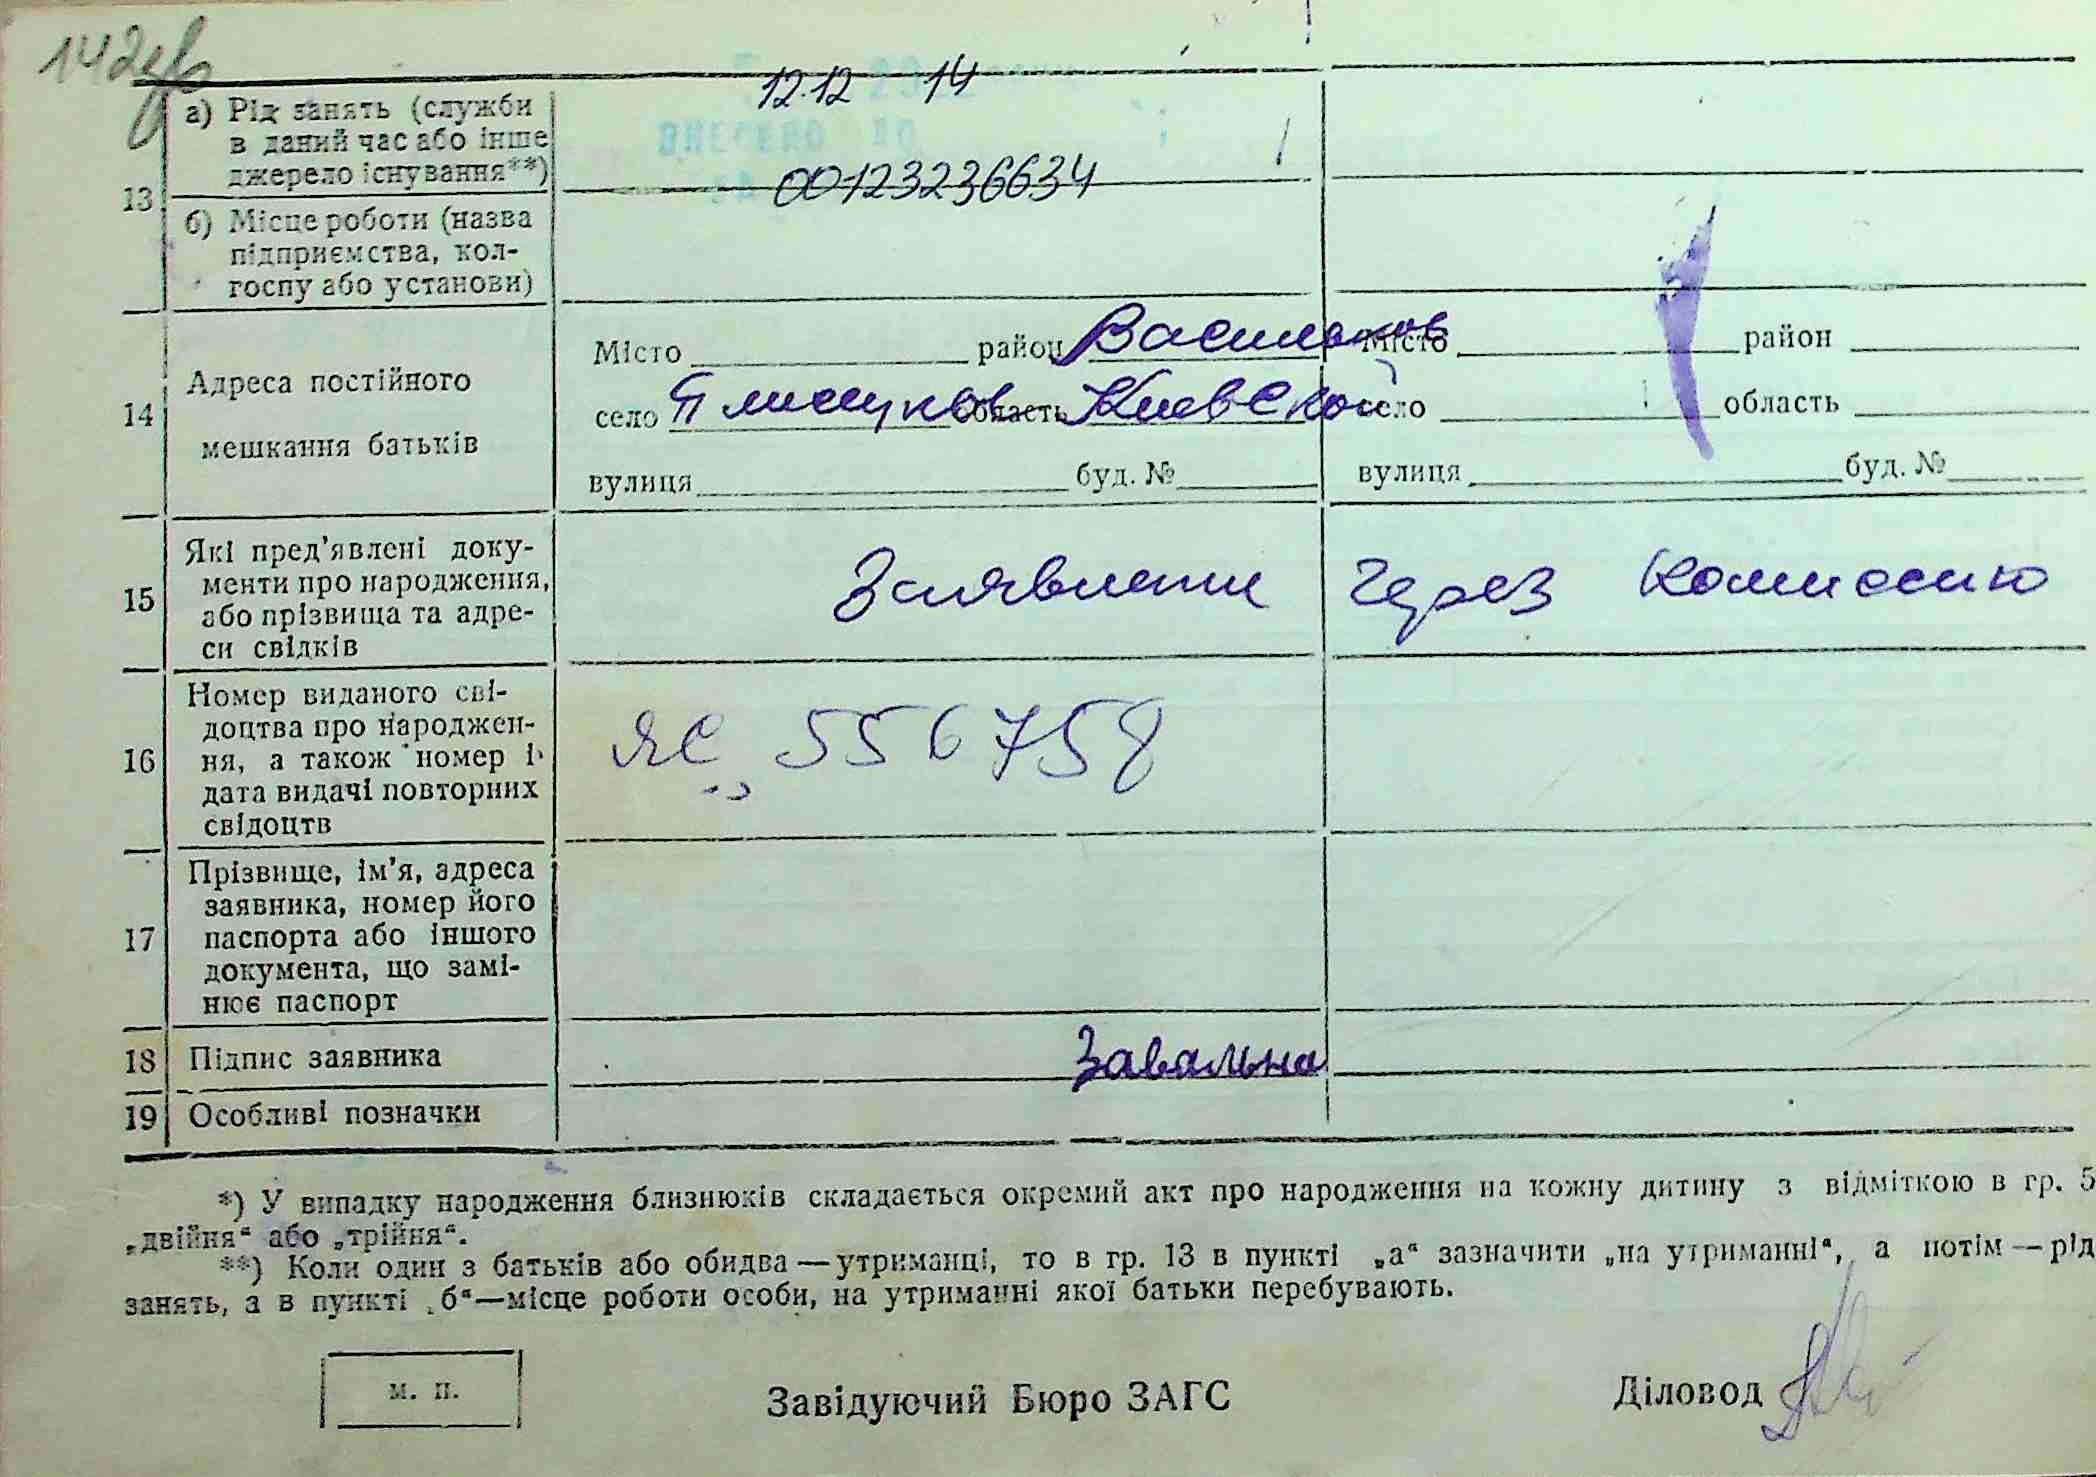 12.12 14
ВНЕСЕНО ДО
00123236634
13
а) Рід занять (служби
в даний час або інше
джерело існування**)
б) Місце роботи (назва
підприємства, кол-
госпу або установи)
14
Адреса постійного
мешкання батьків
Місто район Васильков
село Плисецкое область Киевской
вулиця буд. №
Місто район
село область
вулиця буд. №
15
Які пред'явлені доку-
менти про народження,
або прізвища та адре-
си свідків
Заявлени через комиссию
16
Номер виданого сві-
доцтва про народжен-
ня, а також номер і
дата видачі повторних
свідоцтв
ЯС 556758
17
Прізвище, ім'я, адреса
заявника, номер його
паспорта або іншого
документа, що замі-
нює паспорт
18 Підпис заявника Завальна
19 Особливі позначки
*) У випадку народження близнюків складається окремий акт про народження на кожну дитину з відміткою в гр. 5
„двійня“ або „трійня“.
**) Коли один з батьків або обидва—утриманці, то в гр. 13 в пункті „а“ зазначити „на утриманні“, а потім—рід
занять, а в пункті „б“—місце роботи особи, на утриманні якої батьки перебувають.
м. п.
Завідуючий Бюро ЗАГС
Діловод